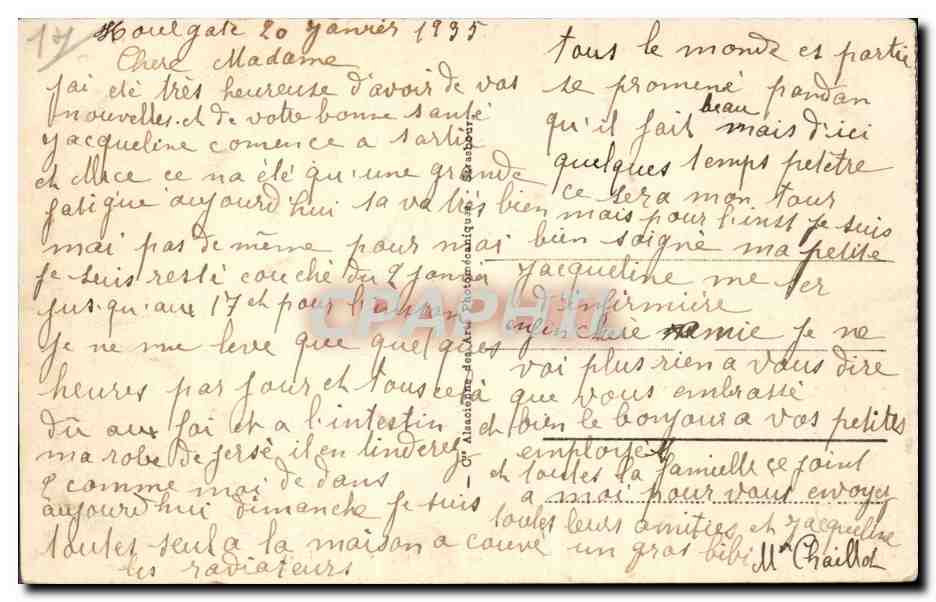 17
Houlgate 20 Janvier 1935
Chere Madame
jai été très heureuse d'avoir de vos
nouvelles et de votre bonne santé
Jacqueline comence a sortir
et Mece ce na été qu'une grande
fatigue aujourd'hui sa va très bien
mai pas de même pour moi
je suis resté couché du 2 janvier
jusqu'aux 17 et pour l'instan
je ne me leve que quelques
heures par jour et tous cela
dû aux foi et a l'intestin
ma robe de jersé il en tinderez
2 comme moi de dans
aujourd'hui dimanche je suis
toutes seul a la maison a couvé
les radiateurs
Cie Alsacienne des Arts Photomécaniques, Strasbourg
tous le monde es partie
se promené pandan
qu'il fait beau mais d'ici
quelques temps petetre
ce sera mon tour
mais pour l'inst je suis
bien soigné ma petite
Jacqueline me ser
d'enfirmiére
enfin chere amie je ne
voi plus rien a vous dire
que vous embrassé
et bien le bonjour a vos petites
employé
et toutes la familles ce joint
a moi pour vous envoyez
toutes leurs amities et Jacqueline
un gros bibi
Mme Chaillot
CPAPHIL